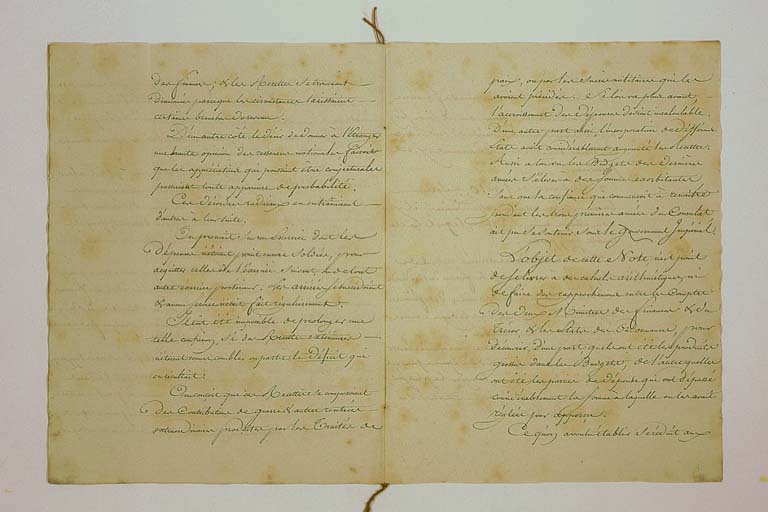 des finances, & les Recettes se trouvaient
diminuées parceque les circonstances tarissaient
certaines branches de revenu.
D'un autre côté le désir de donner à l'étranger
une haute opinion des ressources nationales faisait
que les appréciations qui pouvaient être conjecturales
prenaient toute apparence de probabilité.
Ces désordres radicaux en entraînaient
d'autres à leur suite.
On prenait sur un Exercice dont les
dépenses n'étaient point encore soldées, pour
acquitter celles de l'exercice suivant, & de tout
autre exercice postérieur. Les arriérés s'étendaient
& aucun service n'était fait régulièrement.
Il eut été impossible de prolonger une
telle confusion, si des Recettes extérieures
n'étaient venues combler en partie le Déficit qui
en résultait.
On conçoit que ces Recettes se composaient
des Contributions de guerre & autres rentrées
extraordinaires produites par les Traités de
paix, ou par les succès militaires qui les
avaient précédés. Si l'on va plus avant,
l'accroissement des dépenses devient incalculable.
D'une autre part aussi l'incorporation de différens
états avait considérablement augmenté les Recettes.
Aussi a-t-on vu les Budgets des dernières
années s'élever à des sommes exorbitantes
sans que la confiance qui commençait à renaître
pendant les trois premières années du Consulat
ait pu se soutenir sous le Gouvernement Impérial.
L'objet de cette Note n'est point
de se livrer à des calculs arithmétiques, ni
de faire des rapprochemens entre les Comptes
des deux Ministres des finances & du
Trésor & les états des Ordonnances, pour
découvrir, d'une part, quels ont été les produits
grossis dans les Budgets, de l'autre quelles
ont été les parties de dépenses qui ont dépassé
considérablement la somme à laquelle on les avait
réglées par apperçu.
Ce qui y aurait établi se réduit aux